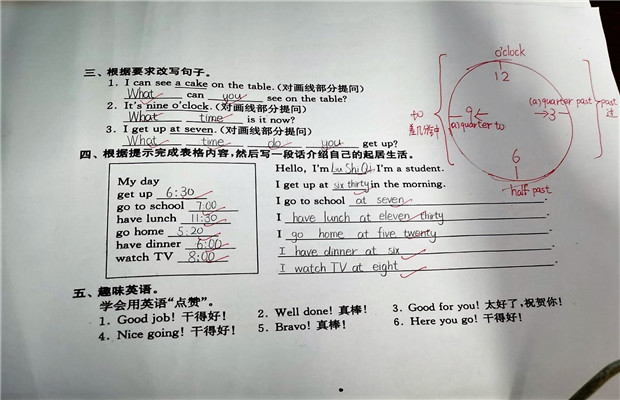 三、根据要求改写句子。
1. I can see a cake on the table. (对画线部分提问)
What can you see on the table?
2. It's nine o'clock. (对画线部分提问)
What time is it now?
3. I get up at seven. (对画线部分提问)
What time do you get up?
四、根据提示完成表格内容,然后写一段话介绍自己的起居生活。
My day
get up 6:30
go to school 7:00
have lunch 11:30
go home 5:20
have dinner 6:00
watch TV 8:00
Hello, I'm Lu Shi Qi. I'm a student.
I get up at six thirty in the morning.
I go to school at seven.
I have lunch at eleven thirty.
I go home at five twenty.
I have dinner at six.
I watch TV at eight.
五、趣味英语。
学会用英语“点赞”。
1. Good job! 干得好! 2. Well done! 真棒! 3. Good for you! 太好了,祝贺你!
4. Nice going! 干得好! 5. Bravo! 真棒! 6. Here you go! 干得好!
o'clock
12
(a) quarter past
3
past
过
9
(a) quarter to
to
6
half past